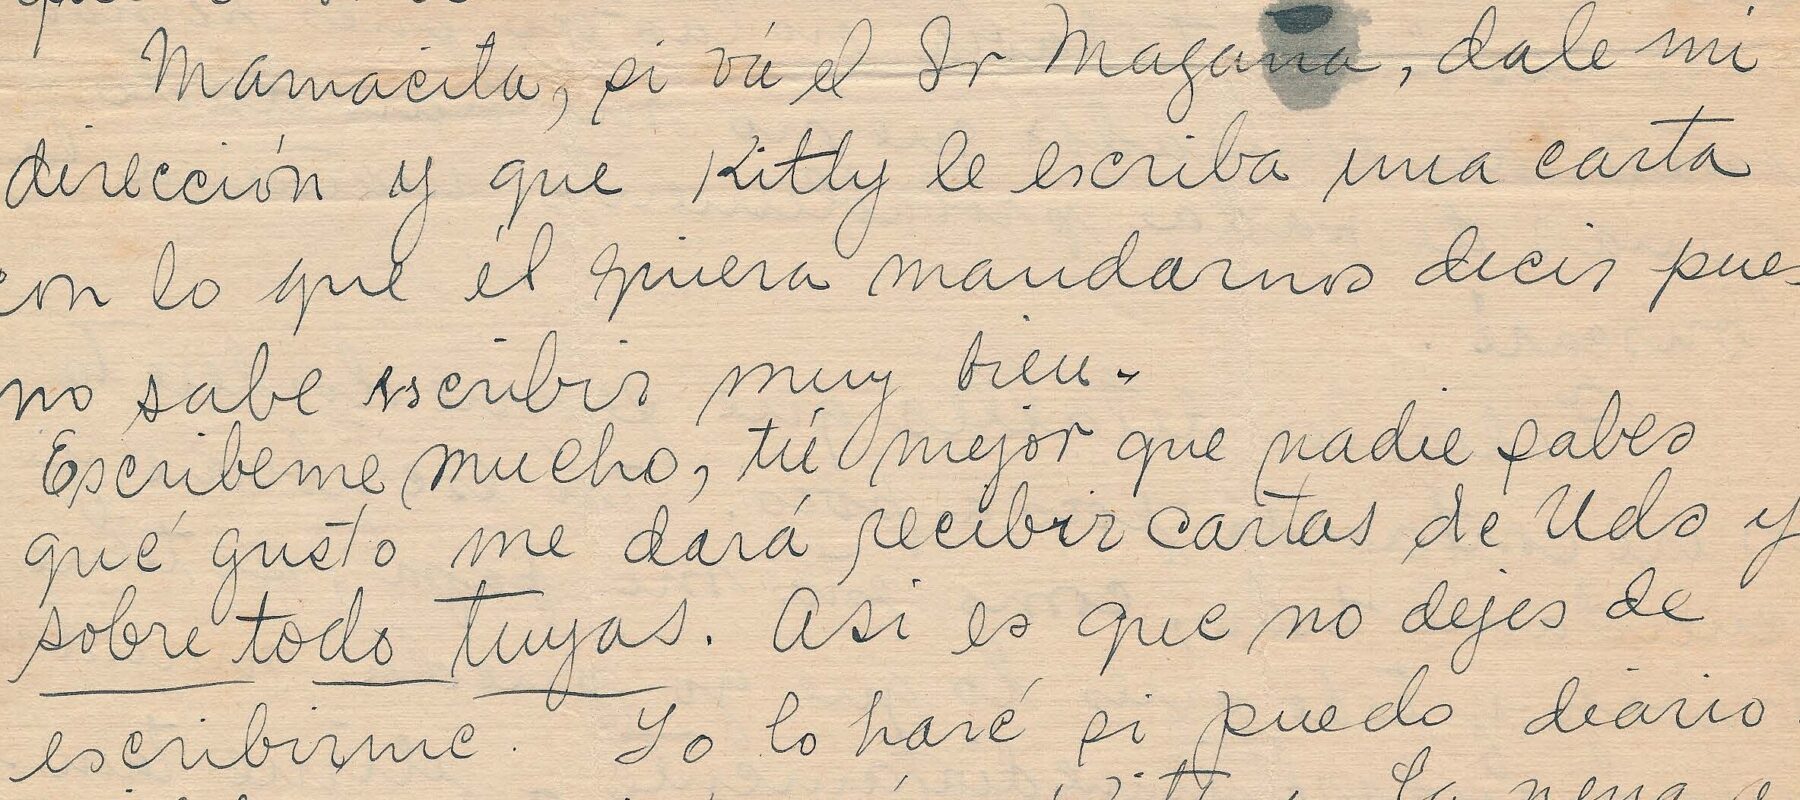 que
Mamacita, si vá el Sr Magana, dale mi
dirección y que Kitty le escriba una carta
con lo que él quiera mandarnos decir pues
no sabe escribir muy bien.
Escribeme mucho, tú mejor que nadie sabes
qué gusto me dará recibir cartas de Uds y
sobre todo tuyas. Asi es que no dejes de
escribirme. Yo lo haré si puedo diario.
La nena